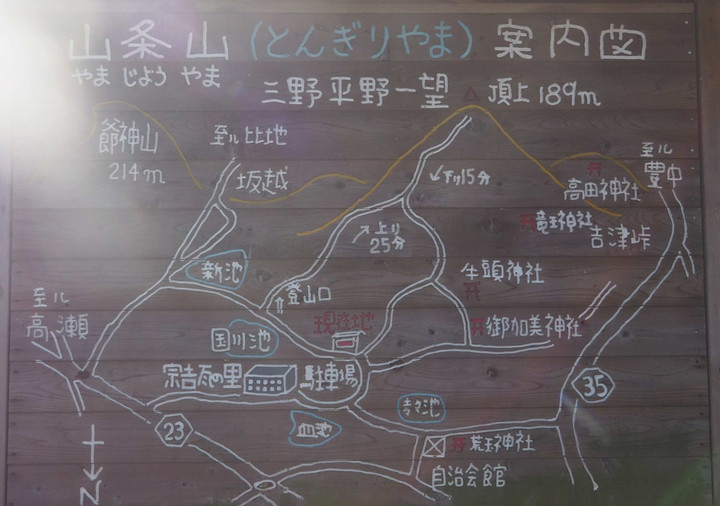 山条山(とんぎりやま)案内図
やまじょうやま
三野平野一望 頂上189m
爺神山
214m
至ル比地
坂越
↙下り15分
至ル
豊中
高田神社
竜王神社
吉津峠
↗上り
25分
新池
登山口
牛頭神社
至ル
高瀬
現在地
御加美神社
国川池
宗吉瓦の里
駐車場
35
皿池
23
荒王神社
自治会館
N